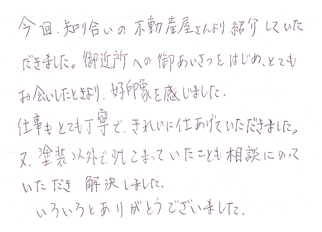 今回、知り合いの不動産屋さんより紹介していた
だきました。御近所への御あいさつをはじめ、とても
お会いしたときより、好印象を感じました。
仕事もとても丁寧で、きれいに仕あげていただきました。
又、塗装以外で少しこまっていたことも相談にのって
いただき解決しました。
いろいろとありがとうございました。